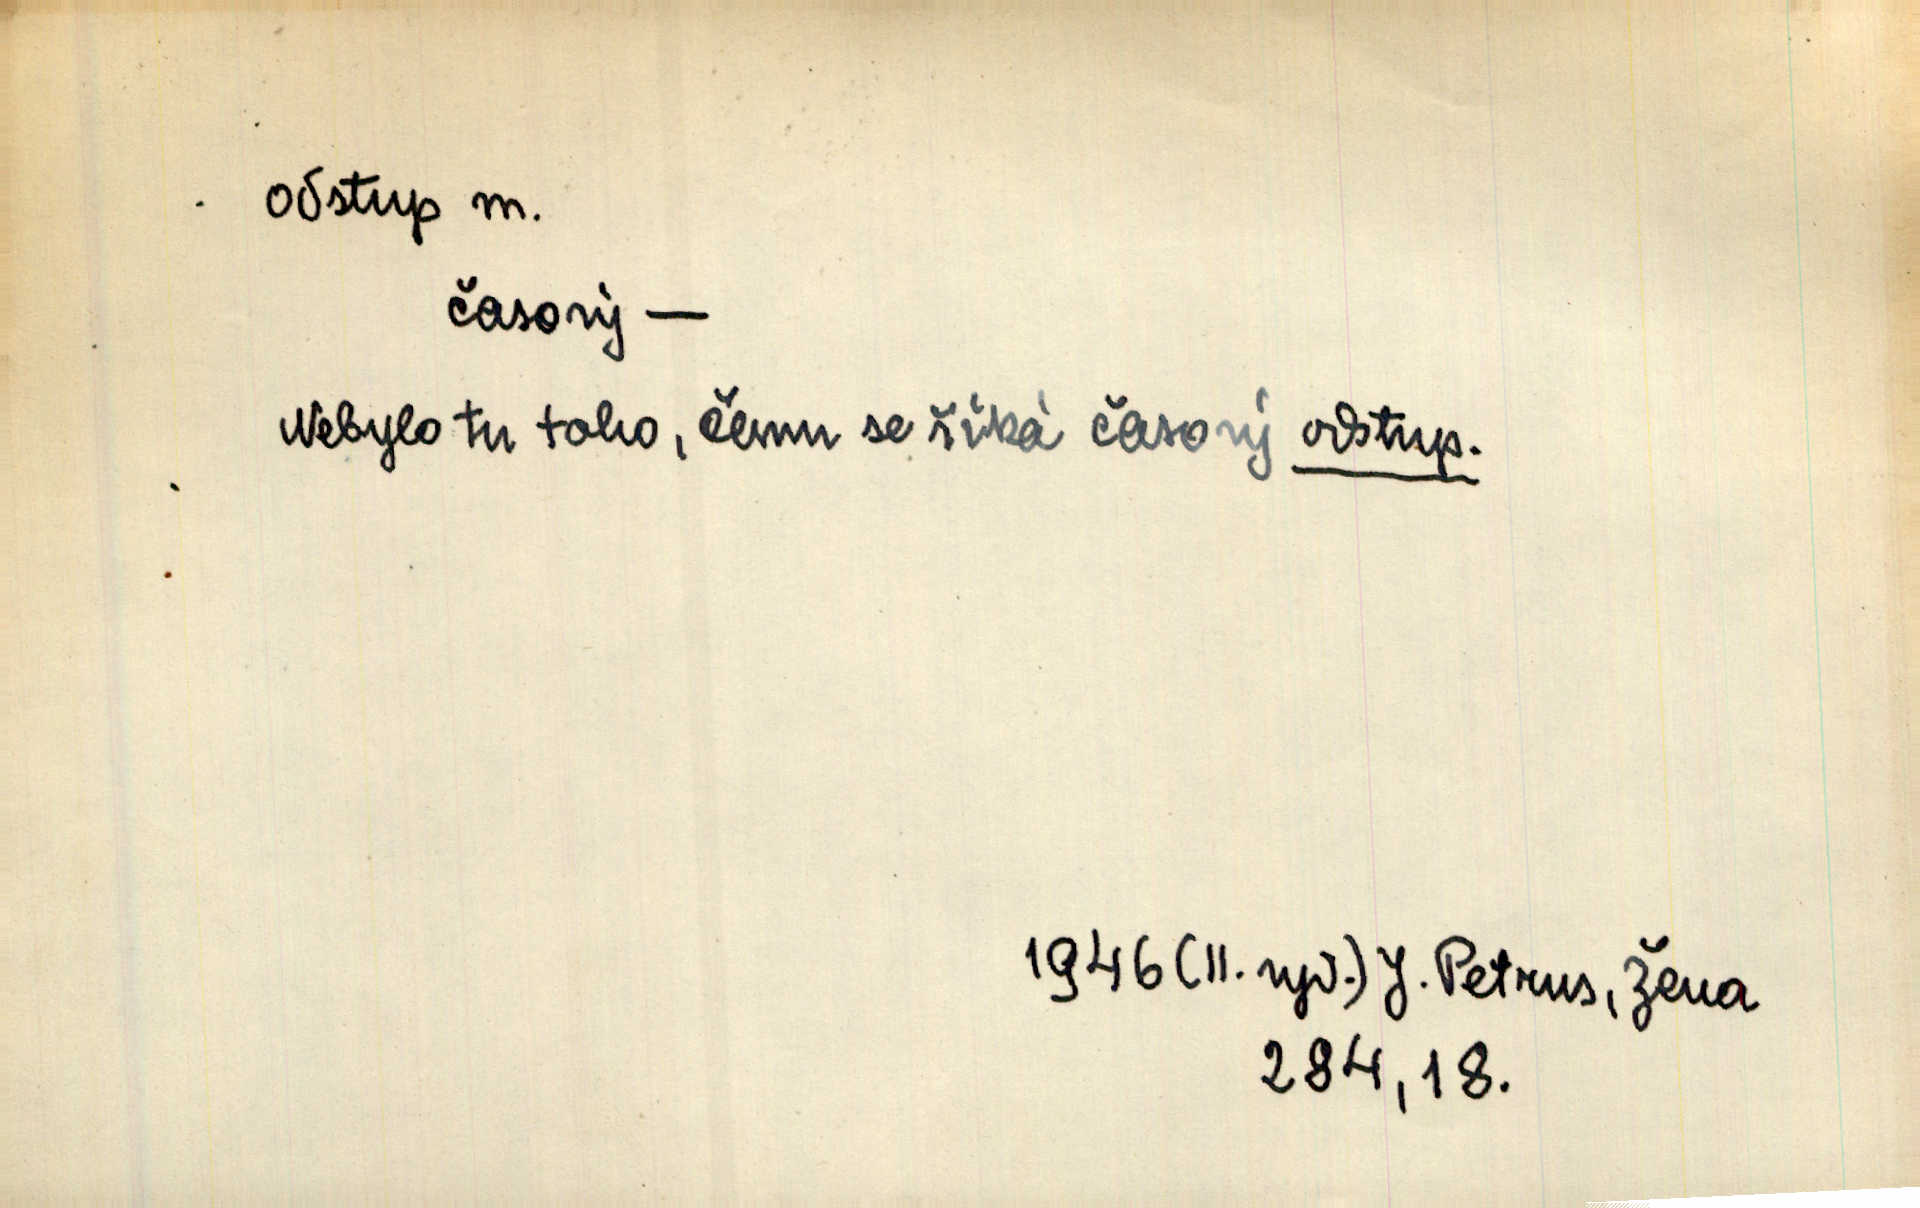 odstup m.
časový —
Nebylo tu toho, čemu se říká časový odstup.
1946 (II. vyd.) J. Petrus, Žena
284, 18.